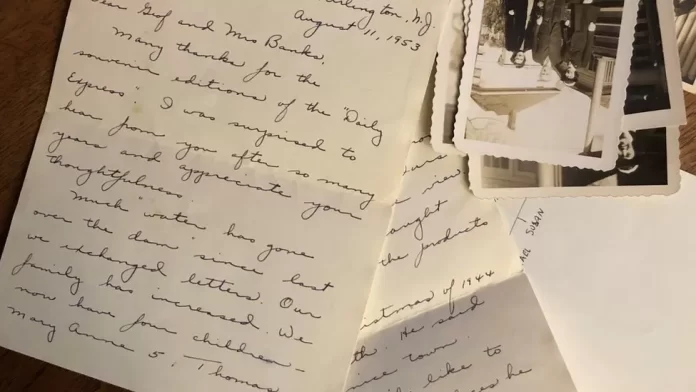 Arlington, N.J.
August 11, 1953
Dear Gef and Mrs Banks,
Many thanks for the
souvenir editions of the "Daily
Express". I was surprised to
hear from you after so many
years and appreciate your
thoughtfulness.
Much "water has gone
over the dam" since last
we exchanged letters. Our
family has increased. We
now have four children –
Mary Anne 5, Thomas
view
the products
of 1944
He said
town.
like to
he
SUSAN